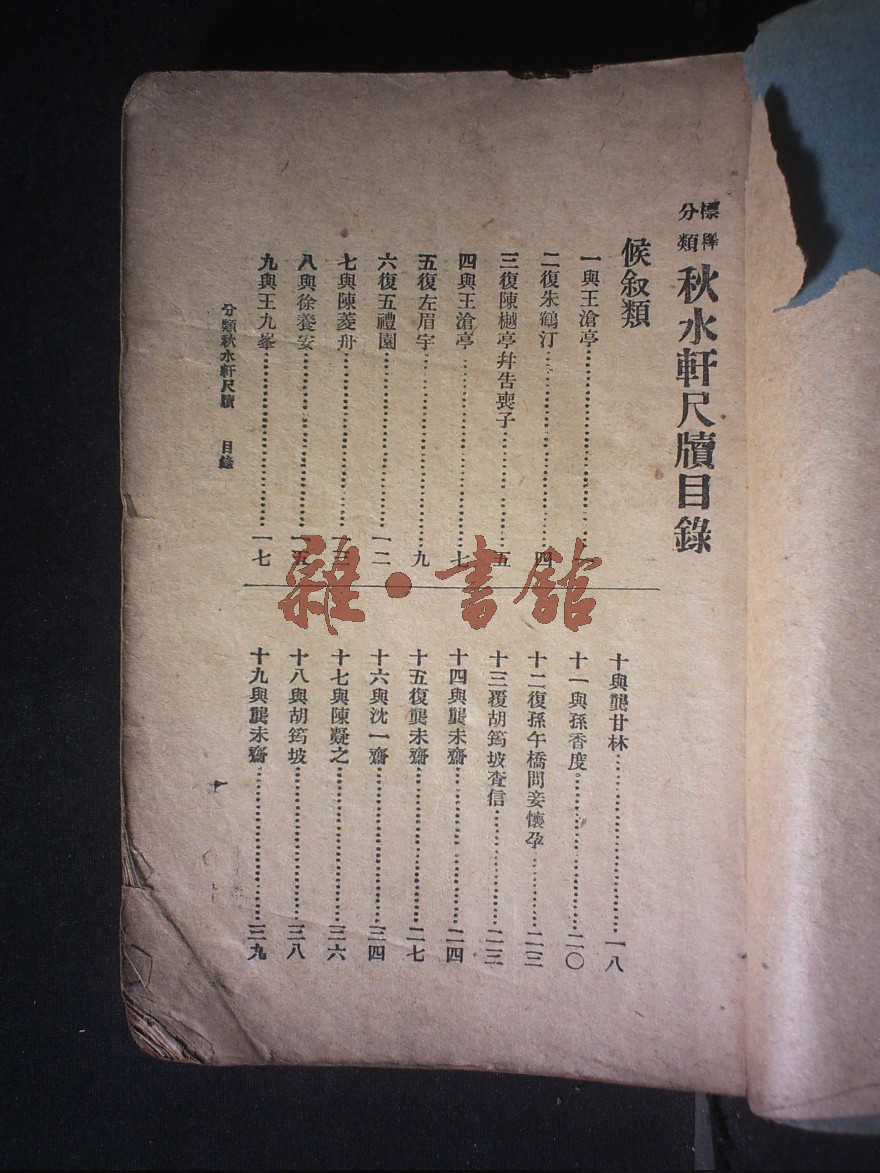 標釋
分類
秋水軒尺牘目錄
候叙類
一與王滄亭…………一
二復朱鶴汀…………四
三復陳樾亭幷告喪子…………五
四與王滄亭…………七
五復左眉宇…………九
六復五禮園…………一二
七與陳菱舟…………一三
八與徐養安…………一五
九與王九峯…………一七
十與龔甘林…………一八
十一與孫香度…………二〇
十二復孫午橋問妾懷孕…………二三
十三覆胡筠坡查信…………二三
十四與龔未齋…………二四
十五復龔未齋…………二七
十六與沈一齋…………三四
十七與陳凝之…………三六
十八與胡筠坡…………三八
十九與龔未齋…………三九
分類秋水軒尺牘　目錄
雜·書館